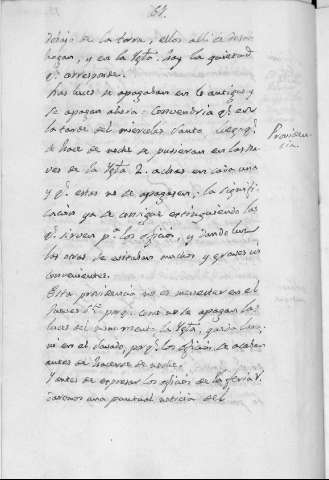 64.
debajo de la torre; ellos alli se desa
hogan, y en la Ygta. hay la quietud
q. corresponde.
Las luces se apagaban en lo antiguo y
se apagan ahora: Convendria q. en
la tarde del miercoles Santo luego q.
se hace de noche se pusieran en las na
ves de la Ygta. 2. achas en cada una
y q. estas no se apagasen; la signifi
cacion ya se consigue extinguiendo las
q. sirven pa. los oficios, y dando luz
las otras se evitaban muchos y graves in
convenientes.
Providen
cia.
Esta providencia no es menester en el
Jueves Sto. porq. como no se apagan las
luces del monumento la Ygta.
ni en el Sabado, porq. los oficios se acaban
antes de hacerse de noche.
Y antes de expresar los oficios de la feria V.
daremos una puntual noticia del